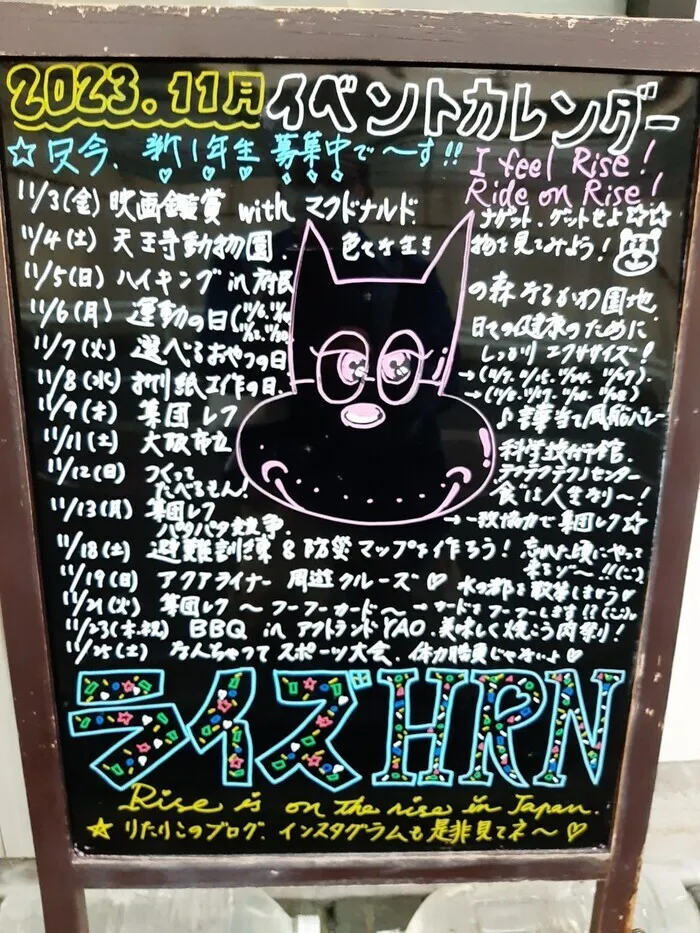 2023.11月イベントカレンダー
☆只今、新1年生募集中で〜す!!
I feel Rise!
Ride on Rise!
11/3(金) 映画鑑賞 with マクドナルド ナゲット、ゲットせよ☆☆
11/4(土) 天王寺動物園. 色々な生き物を見てみよう!
11/5(日) ハイキング in 府民の森 園地.
11/6(月) 運動の日 日々の健康のために
しっかり エクササイズ!
11/7(火) 選べるおやつの日
11/8(水) 折り紙工作の日.
11/9(木) 集団レク ♪言葉当て風船バレー
11/11(土) 大阪市立 科学技術館.
11/12(日) つくって たべるもん! 食は人生なり〜!
11/13(月) 集団レク パタパタ競争. →一致協力で集団レク☆
11/18(土) 避難訓練&防災マップを作ろう! 忘れた頃にやって
来るゾ〜!!
11/19(日) アクアライナー 周遊クルーズ♡ 水の都を散策しましょう♡
11/21(火) 集団レク 〜フーフーカード〜 →カードをフーフーします!?
11/23(木・祝) BBQ in アクトランドYAO. 美味しく焼こう肉祭り!
11/25(土) なんちゃって スポーツ大会. 体力勝負じゃないよ♡
ライズHRN
Rise is on the rise in Japan.
★りたりこのブログ、インスタグラムも是非見てネ〜♡